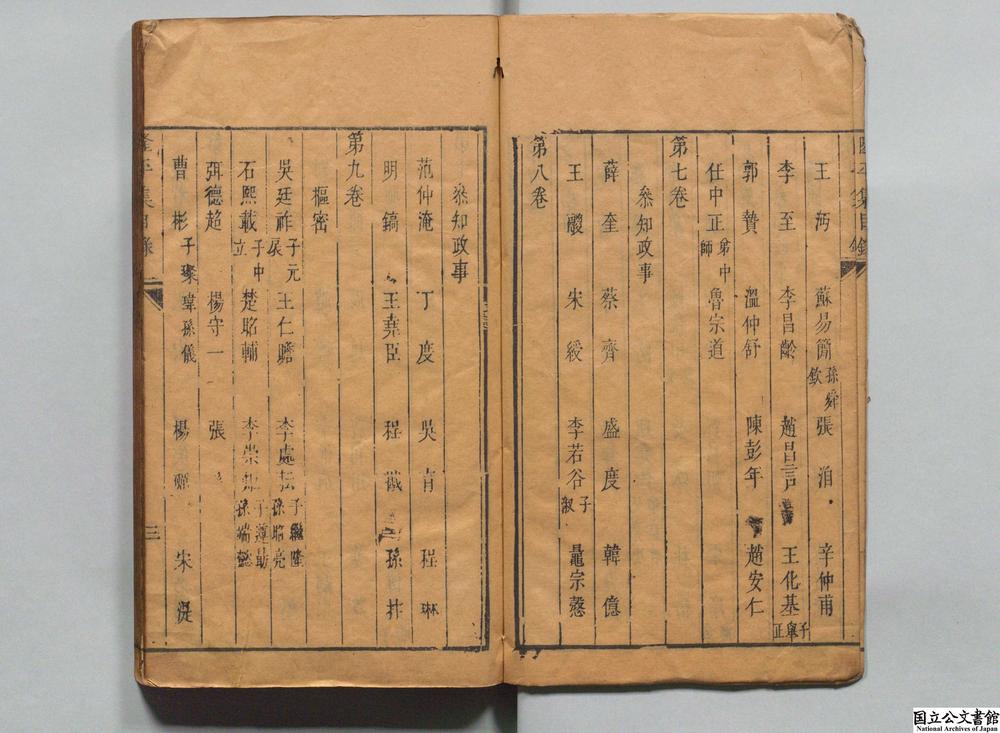 王沔 蘇易簡孫舜欽 張洎 辛仲甫
李至 李昌齡 趙昌言 王化基子舉正
郭贄 溫仲舒 陳彭年 趙安仁
任中正弟中師 魯宗道
第七卷
叅知政事
薛奎 蔡齊 盛度 韓億
王鬷 宋綬 李若谷子淑 鼂宗慤
第八卷
叅知政事
范仲淹 丁度 吳育 程琳
明鎬 王堯臣 程戡 孫抃
第九卷
樞密
吳廷祚子元扆 王仁贍 李處耘子繼隆孫昭亮
石熙載子中立 楚昭輔 李崇矩子遵勗孫端懿
弭德超 楊守一 張
曹彬子璨瑋孫儀 楊 宋湜
隆平集目錄
三
国立公文書館
National Archives of Japan